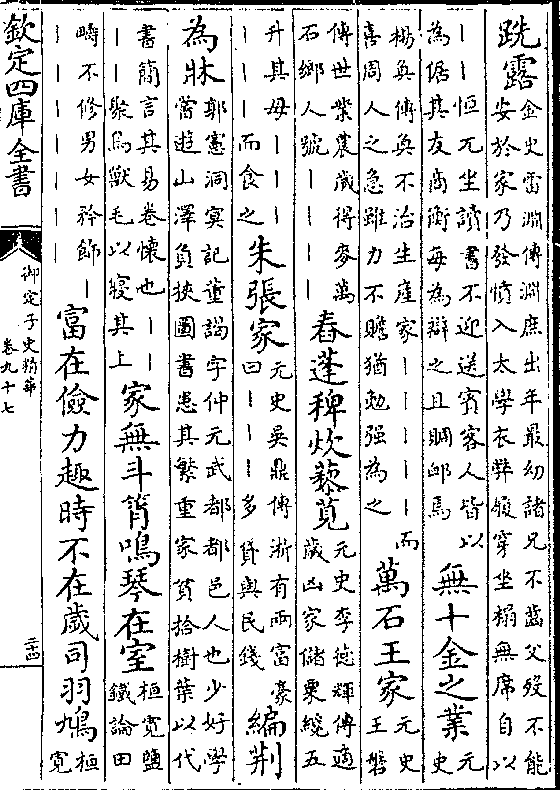 跣露金史雷淵傳淵庶出年最幼諸兄不齒父歿不能
安於家乃發憤入太學衣弊履穿坐榻無席自以
｜｜恒兀坐讀書不迎送賓客人皆以
為倨其友商衡每為辯之且賙䘏焉
無十金之業元史
楊奐傳奐不治生産家｜｜｜｜｜而
喜周人之急雖力不贍猶勉强為之
萬石王家元史王磐
傳世業農歲得麥萬
石鄉人號｜｜｜｜
舂蓬稗炊藜莧元史李德輝傳適
歲凶家儲粟纔五
升其母｜｜｜
｜｜｜而食之
朱張家元史吳鼎傳浙有兩富豪
曰｜｜｜多貸與民錢
編荆
為牀郭憲洞冥記董謁字仲元武都郁邑人也少好學
嘗遊山澤負挾圖書患其繁重家貧拾樹葉以代
書簡言其易卷懷也｜｜
｜｜聚鳥獸毛以寢其上
家無斗筲鳴琴在室桓寛鹽
鐵論田
疇不修男女矜飾｜
｜｜｜｜｜｜｜
富在儉力趣時不在歲司羽鳩桓
寛
欽定四庫全書
御定子史精華
卷九十七
二十四